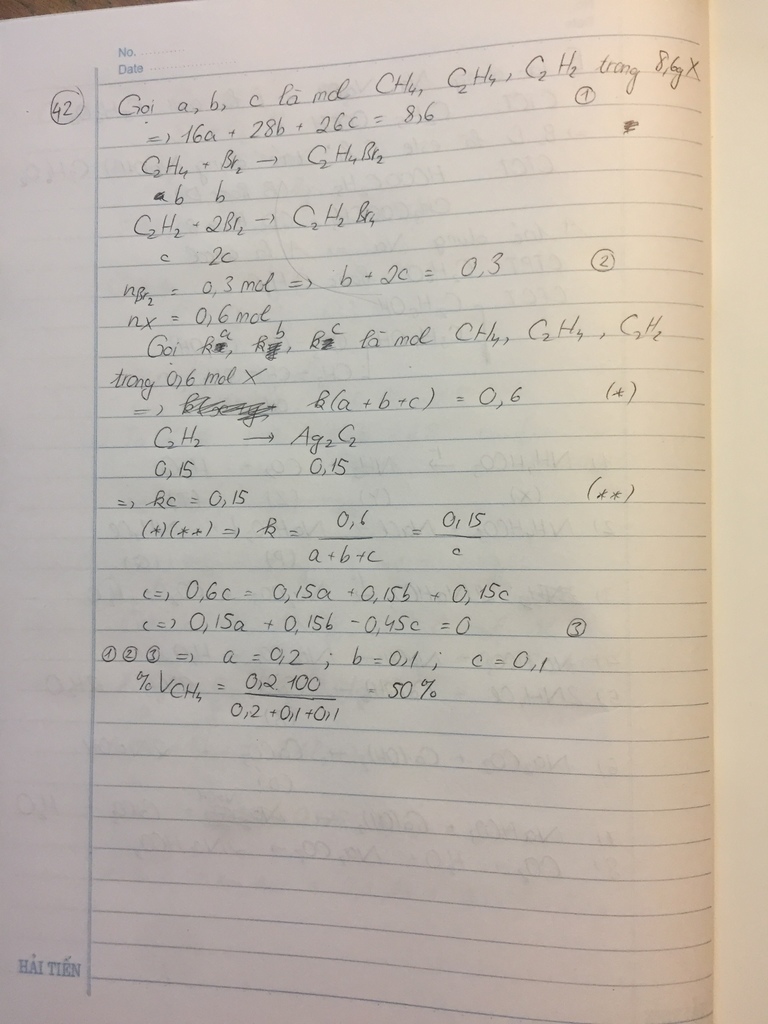 No.
Date
42 Gọi a, b, c là mol CH4, C2H4, C2H2 trong 8,6g X
=> 16a + 28b + 26c = 8,6 ①
C2H4 + Br2 → C2H4Br2
b b
C2H2 + 2Br2 → C2H2Br4
c 2c
nBr2 = 0,3 mol => b + 2c = 0,3 ②
nX = 0,6 mol
Gọi ka, kb, kc là mol CH4, C2H4, C2H2
trong 0,6 mol X
=> k(a + b + c) = 0,6 (*)
C2H2 → Ag2C2
0,15 0,15
=> kc = 0,15 (**)
(*)(**) => k = 0,6 / a+b+c = 0,15 / c
<=> 0,6c = 0,15a + 0,15b + 0,15c
<=> 0,15a + 0,15b - 0,45c = 0 ③
①②③ => a = 0,2 ; b = 0,1 ; c = 0,1
%VCH4 = 0,2.100 / 0,2+0,1+0,1 = 50%
HẢI TIẾN